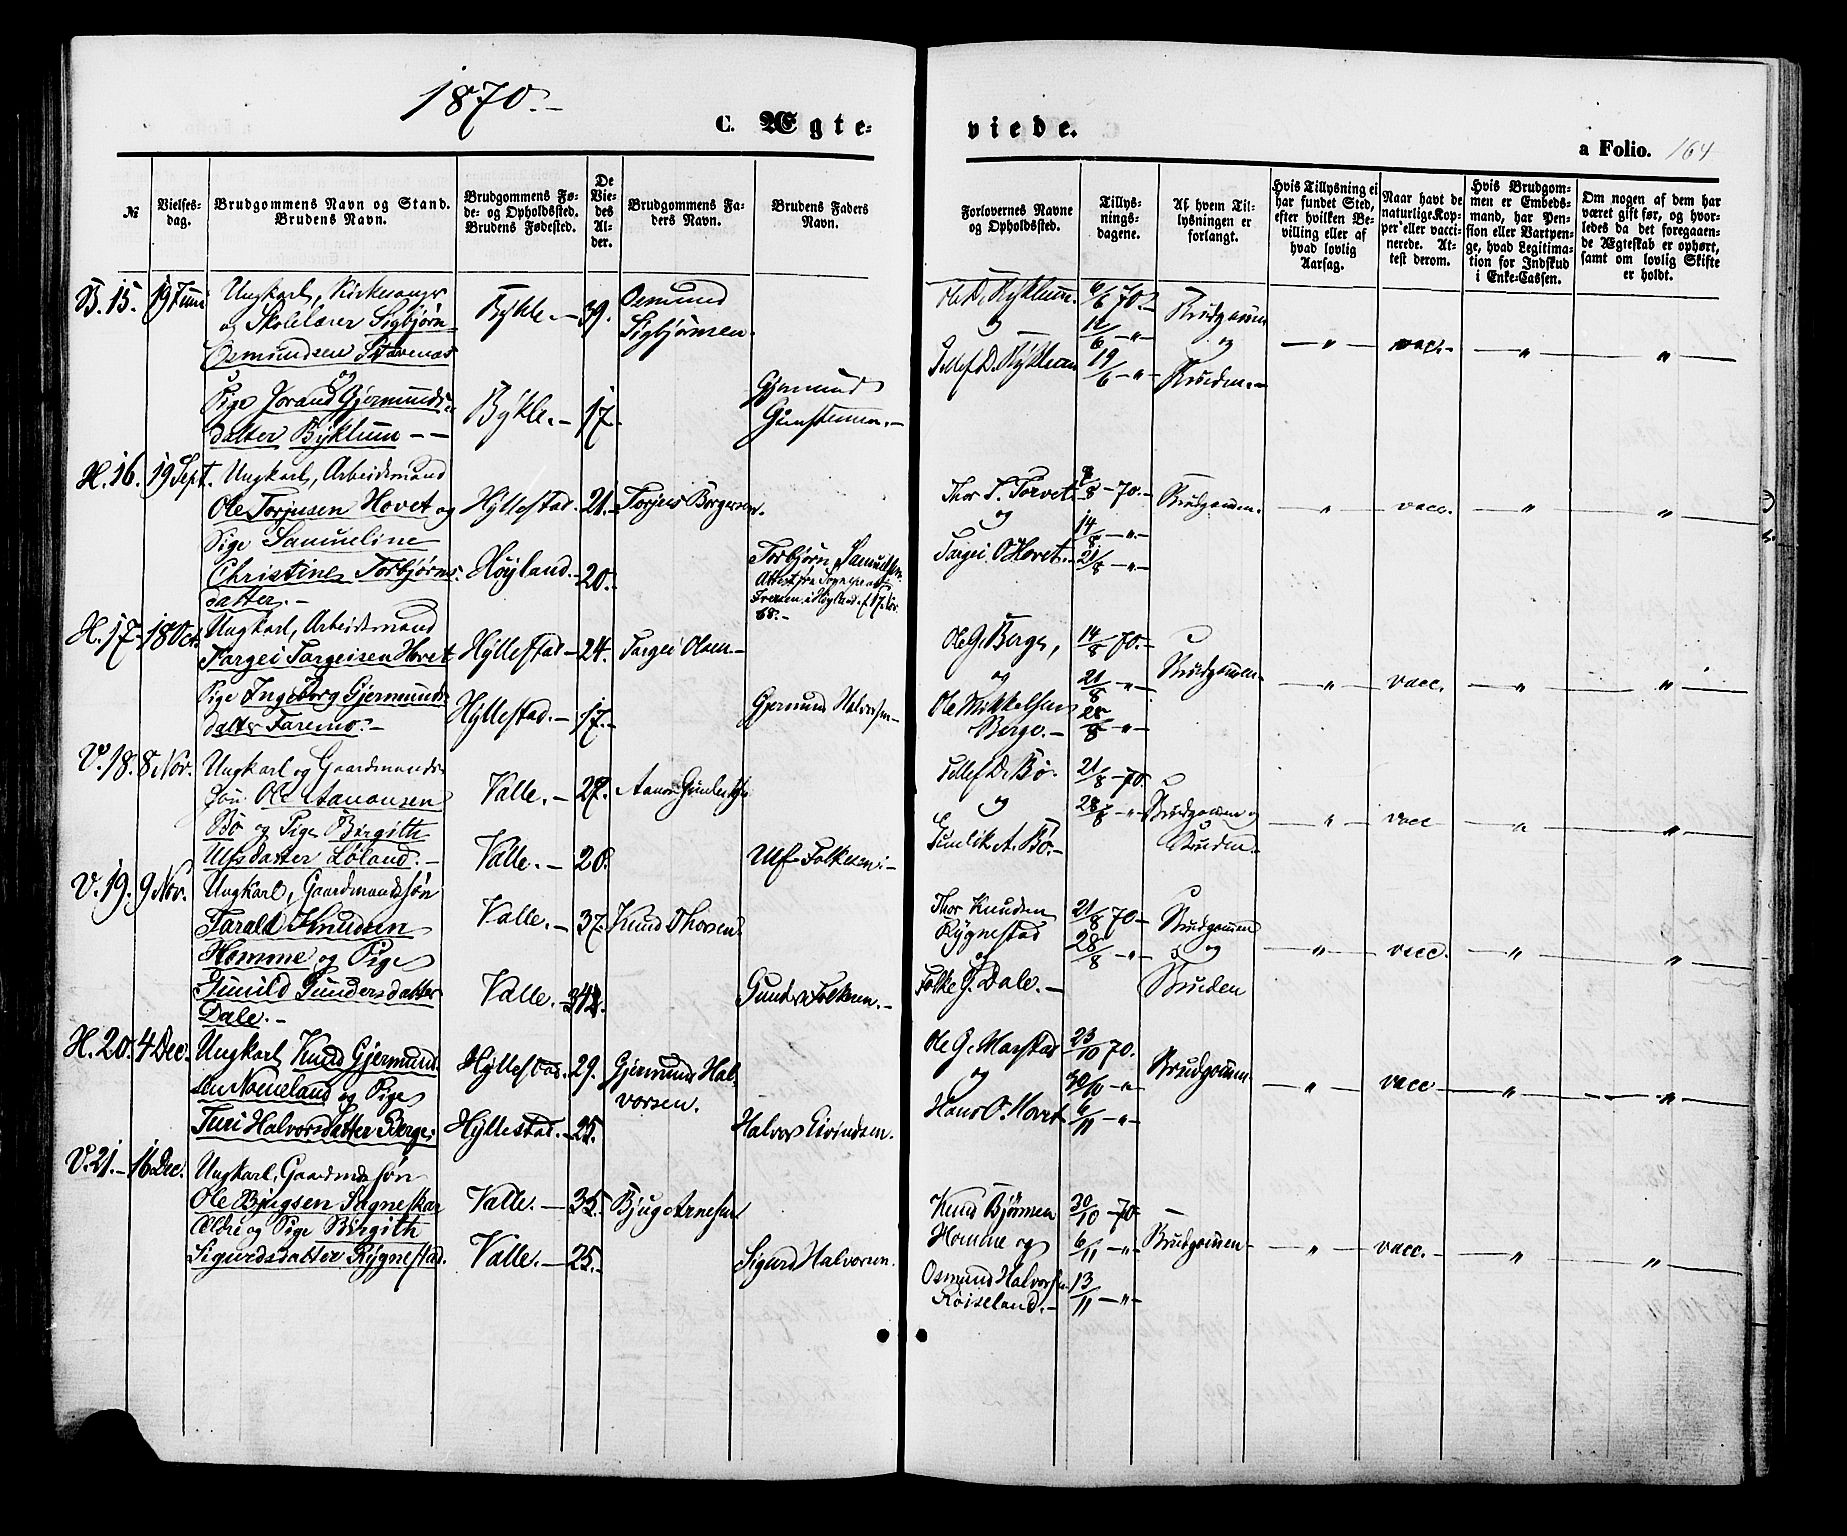 1870.-
C. Ægte-
viede.
a Folio. 164
№
Vielses-
dag.
Brudgommens Navn og Stand.
Brudens Navn.
Brudgommens Fø-
de- og Opholdssted.
Brudens Fødested.
De
Vie-
des
Al-
der.
Brudgommens Fa-
ders Navn.
Brudens Faders
Navn.
Forlovernes Navne
og Opholdssted.
Tillys-
nings-
dagene.
Af hvem Til-
lysningen er
forlangt.
Hvis Tillysning ei
har fundet Sted,
efter hvilken Be-
villing eller af
hvad lovlig
Aarsag.
Naar havt de
naturlige Kop-
per eller vacci-
nerede. At-
test derom.
Hvis Brudgom-
men er Embeds-
mand, har Pen-
sion eller Vartpen-
ge, hvad Legitima-
tion for Indskud
i Enke-Cassen.
Om nogen af dem har
været gift før, og hvor-
ledes da det foregaaen-
de Ægteskab er ophørt,
samt om lovlig Skifte
er holdt.
B. 15. 19 Juni
Ungkarl, Kirkesanger
og Skolelærer Sigbjørn
Osmundsen Stavenæs
og
Pige Jorand Gjermunds-
datter Byklum - -
Bykle. - 39.
Bykle. - 17.
Osmund
Sigbjørnsen.
Gjermund
Gunstensen. -
Ole D. Byklum.
og
Tellef D. Byklum
6/6 70. -
12/6 - „ -
19/6 - „ -
Brudgommen
og
Bruden. -
- „ - vacc. - „ - „
H. 16. 19 Sept.
Ungkarl, Arbeidsmand
Ole Torjusen Hovet og
Pige Samueline
Christine Torbjørns-
datter. -
Hyllestad. - 21. -
Høyland. - 20. -
Torjus Borgersen.
Torbjørn Samuelsen.
Iversen i Høyland
68. -
Thor T. Torvet
og
Targei O. Hovet. -
7/8 - 70. -
14/8 - „ -
21/8 - „ -
Brudgommen.
- „ - vacc. - „ - „
H. 17. 18 Oct.
Ungkarl, Arbeidsmand
Targei Targeisen Hovet
Pige Ingeborg Gjermunds-
datter Faremo. -
Hyllestad - 24.
Hyllestad. - 17. -
Targei Olsen -
Gjermund Halvorsen -
Ole G. Berge,
og
Ole Mikkelsen
Berge. -
14/8 70. -
21/8 - „ -
28/8 - „ -
Brudgommen.
- „ - vacc. - „ - „
V. 18. 8 Nov.
Ungkarl og Gaardmands-
søn Ole Aanonsen
Bø og Pige Birgith
Ulfsdatter Løland. -
Valle. - 27.
Valle. - 20.
Aanon Gundersen
Ulf Folkesen. -
Tellef D. Bø.
og
Gunlik A. Bø. -
21/8 - 70.
28/8 - „ -
Brudgommen og
Bruden. -
- „ - vacc - „ - „
V. 19. 9 Nov.
Ungkarl, Gaardmandssøn
Tarald Knudsen
Homme og Pige
Gunild Gundersdatter
Dale. -
Valle. - 37.
Valle. -
Knud Thorsen.
Gunder Folkesen. -
Thor Knudsen
Rygnestad
og
Folke G. Dale. -
21/8 70 -
28/8 - „ -
Brudgommen
og
Bruden
- „ - vacc. - „ - „
H. 20. 4 Dec.
Ungkarl Knud Gjermund-
sen Nomeland og Pige
Turi Halvorsdatter Berge,
Hyllestad. 29.
Hyllestad. - 25.
Gjermund Hal-
vorsen.
Halvor Eivindsen.
Ole G. Harstad
og
Hans O. Hovet
23/10 70.
30/10 - „
6/11 - „ -
Brudgommen -
- „ - vacc - „ - „ -
V. 21. - 16 Dec.
Ungkarl, Gaardmdssøn
Ole Bjugsen Sagneskar
ældre og Pige Birgith
Sigurdsdatter Rygnestad.
Valle. - 35.
Valle. - 25. -
Bjug Arnesen
Sigurd Halvorsen.
Knud Bjørnsen
Homme og
Osmund Halvorsen
Røiseland. -
30/10 - 70 -
6/11 - „ -
13/11 - „ -
Brudgommen -
- „ - vacc. - „ - „